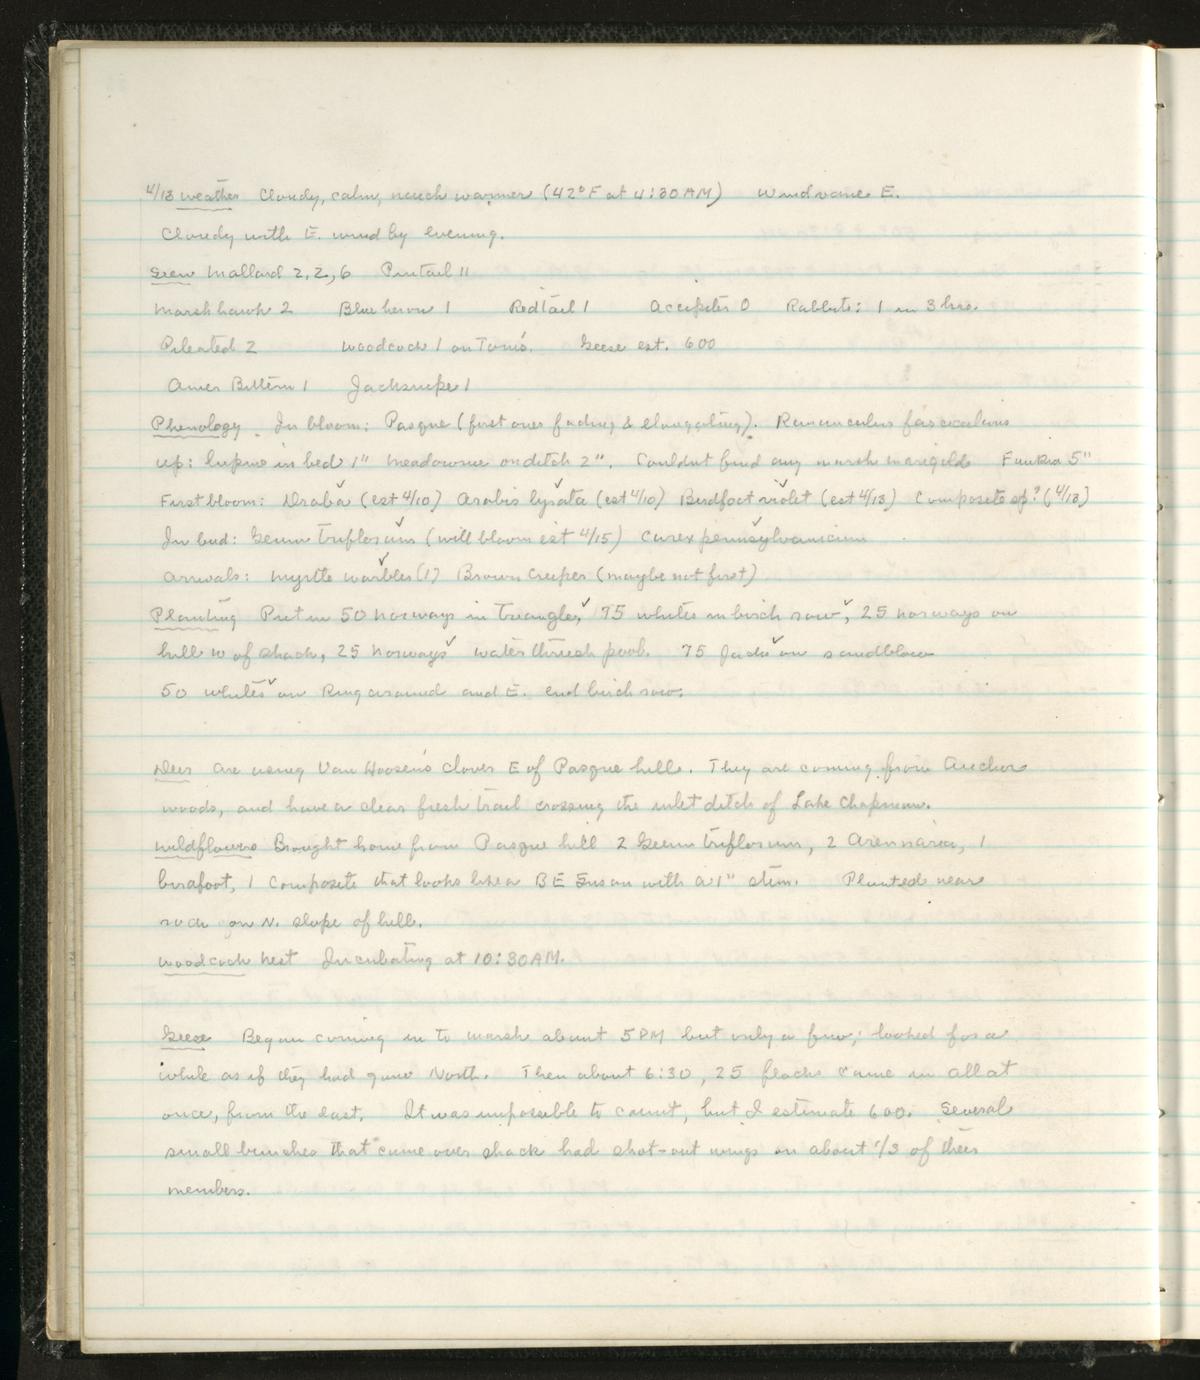 4/13 weather Cloudy, calm, much warmer (42°F at 4:30 AM) Wind vane E.
Cloudy with E. wind by evening.
Seen Mallard 2, 2, 6 Pintail 11
Marsh hawk 2 Blue heron 1 Redtail 1 Accipiter 0 Rabbits: 1 in 3 hrs.
Pileated 2 Woodcock 1 on Tom's. Geese est. 600
Amer Bittern 1 Jacksnipe 1
Phenology. In bloom: Pasque (first ones fading & elongating). Ranunculus fascicularis
up: lupine in bed 1" Meadowrue on ditch 2". Couldnt find any marsh marigolds Funkia 5"
First bloom: Draba (est 4/10) Arabis lyrata (est 4/10) Birdfoot violet (est 4/13) Composite sp? (4/13)
In bud: Geum triflorum (will bloom est 4/15) Carex pennsylvanicum
Arrivals: Myrtle warbler (1) Brown Creeper (maybe not first)
Planting Put in 50 norways in triangle, 75 whites in birch row, 25 norways on
hill W of shack, 25 norways water thrush pool. 75 Jacks on sandblow
50 whites on Ring around and E. end birch row.
Deer are using Van Hoosen's clover E of Pasque hill. They are coming from Anchor
woods, and have a clear fresh trail crossing the inlet ditch of Lake Chapman.
Wildflowers Brought home from Pasque hill 2 Geum triflorum, 2 Arennaria, 1
birdfoot, 1 composite that looks like a BE Susan with a 1" stem. Planted near
rock on N. slope of hill.
Woodcock nest Incubating at 10:30 AM.
Geese Began coming in to marsh about 5 PM but only a few; looked for a
while as if they had gone North. Then about 6:30, 25 flocks came in all at
once, from the east. It was impossible to count, but I estimate 600. Several
small bunches that came over shack had shot-out wings on about 1/3 of their
members.